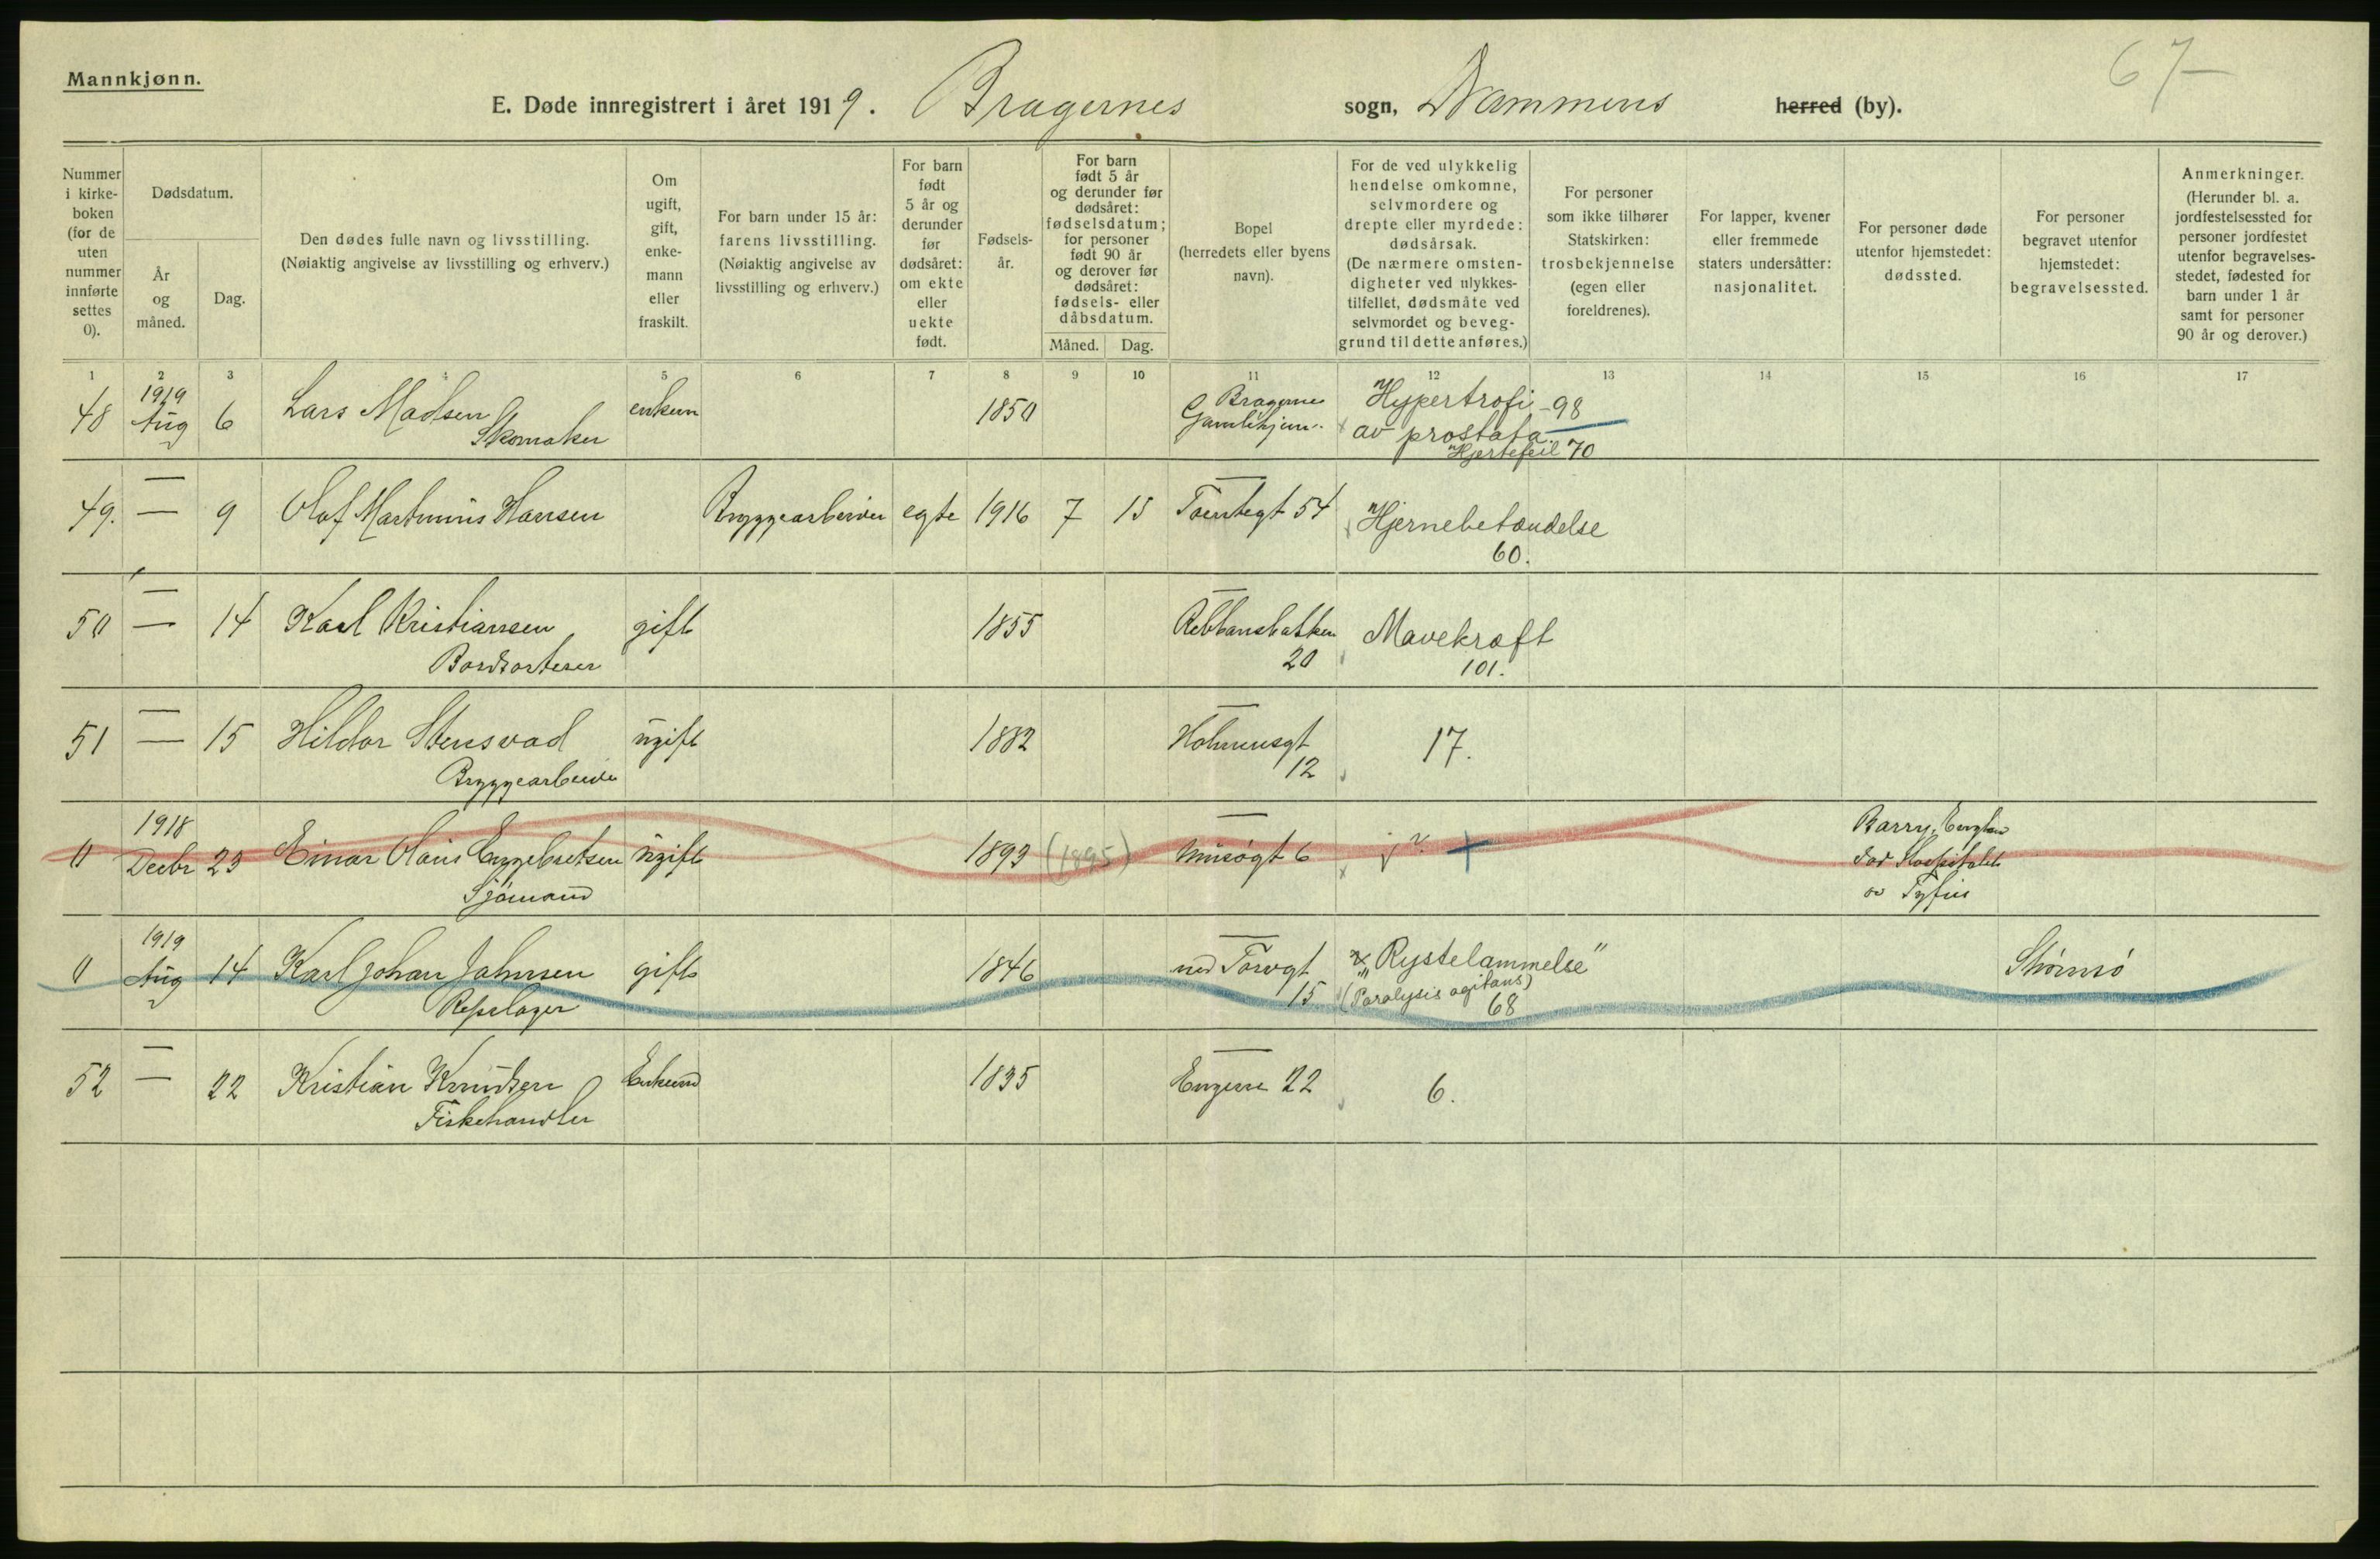 67
Mannkjønn.
E. Døde innregistrert i året 1919. Bragernes sogn, Drammens herred (by).
Nummer i kirkeboken (for de uten nummer innførte settes 0).
Dødsdatum.
År og måned.
Dag.
Den dødes fulle navn og livsstilling. (Nøiaktig angivelse av livsstilling og erhverv.)
Om ugift, gift, enkemann eller fraskilt.
For barn under 15 år: farens livsstilling. (Nøiaktig angivelse av livsstilling og erhverv.)
For barn født 5 år og derunder før dødsåret: om ekte eller uekte født.
Fødselsår.
For barn født 5 år og derunder før dødsåret: fødselsdatum; for personer født 90 år og derover før dødsåret: fødsels- eller dåbsdatum.
Måned. Dag.
Bopel (herredets eller byens navn).
For de ved ulykkelig hendelse omkomne, selvmordere og drepte eller myrdede: dødsårsak. (De nærmere omstendigheter ved ulykkestilfellet, dødsmåte ved selvmordet og beveggrund til dette anføres.)
For personer som ikke tilhører Statskirken: trosbekjennelse (egen eller foreldrenes).
For lapper, kvener eller fremmede staters undersåtter: nasjonalitet.
For personer døde utenfor hjemstedet: dødssted.
For personer begravet utenfor hjemstedet: begravelsessted.
Anmerkninger. (Herunder bl. a. jordfestelsessted for personer jordfestet utenfor begravelsesstedet, fødested for barn under 1 år samt for personer 90 år og derover.)
1 2 3 4 5 6 7 8 9 10 11 12 13 14 15 16 17
48 1919 Aug 6 Lars Madsen Skomaker enkem 1850 Bragernes Gamlehjem Hypertrofi 98 av prostata. Hjertefeil 70
49. — 9 Olaf Martinius Hansen Bryggearbeider egte 1916 7 15 54 Hjernebetændelse 60.
50 — 14 Karl Kristiansen Bordsorterer gift 1855 Rebbansbakken 20 Mavekræft 101.
51 — 15 Hildor Stensvad Bryggearbeider ugift 1882 Holmensgt 12 17.
0 1918 Decbr 23 Einar Olaus Engebretsen Sjømand ugift 1893 (1895) 6 Barry, England Hospitalet av Tyfus
0 1919 Aug 14 Karl Johan Johnsen Repslager gift 1846 ned Torvgt 15 "Rystelammelse" (Paralysis agitans) 68 Strømsø
52 — 22 Kristian Knudsen Fiskehandler Enkem 1835 Engene 22 6.